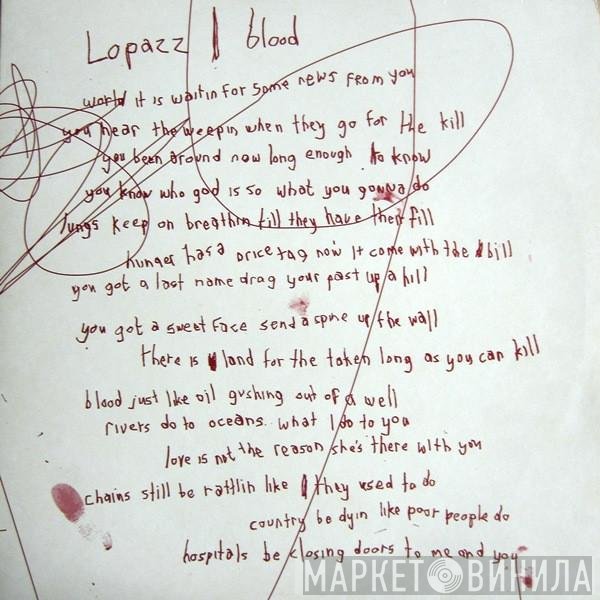 Lopazz blood
world it is waitin for some news from you
you hear the weepin when they go for the kill
you been around now long enough to know
you know who god is so what you gonna do
lungs keep on breathin till they have their fill
hunger has a price tag now it come with the bill
you got a last name drag your past up a hill
you got a sweet face send a spine up the wall
there is land for the taken long as you can kill
blood just like oil gushing out of a well
rivers do to oceans what I do to you
love is not the reason she's there with you
chains still be rattlin like they used to do
country be dyin like poor people do
hospitals be closing doors to me and you
МАРКЕТ ВИНИЛА